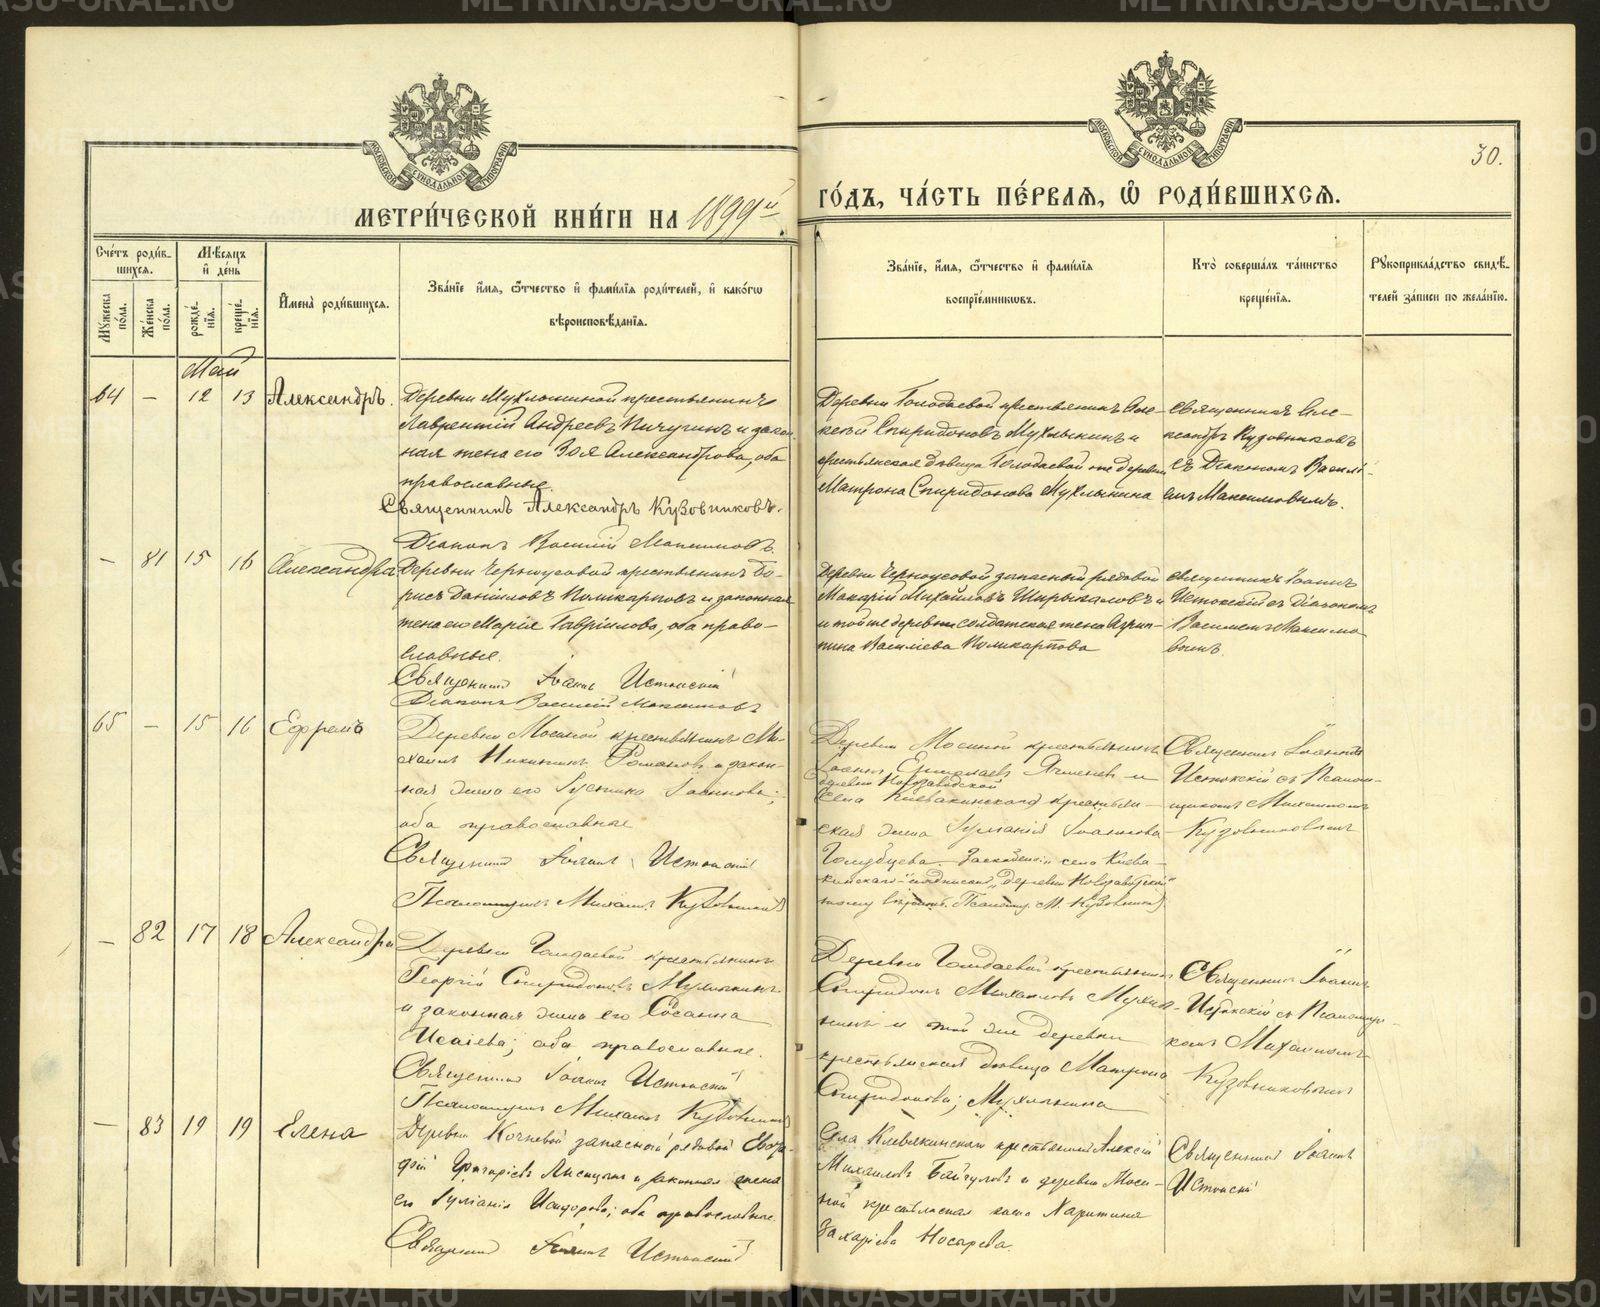 МЕТРИ́ЧЕСКОЙ КНИ́ГИ НА 1899й
ГО́ДЪ, ЧА́СТЬ ПЕ́РВАЯ, Ѽ РОДИ́ВШИХСЯ.
30.
Сче́тъ роди́в-
шихся.
Мѣ́сяцъ
и҆ де́нь
Му́жеска
по́ла.
Же́нска
по́ла.
рожде́-
нїя.
креще́-
нїя.
И҆мена̀ роди́вшихся.
Зва́нїе и҆́мя, ѻ҆́тчество и҆ фами́лїя роди́телей, и҆ како́гѡ
вѣроисповѣ́данїя.
Зва́нїе, и҆́мя, ѻ҆́тчество и҆ фами́лїя
воспрїе́мникѡвъ.
Кто̀ соверша́лъ та́инство
креще́нїя.
Рукоприкла́дство свидѣ́-
телей за́писи по жела́нїю.
МОСКОВСКОЙ СѴНОДАЛЬНОЙ ТИПОГРАФІИ
МОСКОВСКОЙ СѴНОДАЛЬНОЙ ТИПОГРАФІИ
Май
64 — 12 13 Александръ.
Деревни Мухлыниной крестьянинъ
Лаврентій Андреевъ Пичугинъ и закон-
ная жена его Зоя Александрова, оба
православные.
Священникъ Александръ Кузовниковъ.
Діаконъ Василій Максимовъ.
Деревни Голодаевой крестьянинъ Але-
ксѣй Спиридоновъ Мухлынинъ и
крестьянская дѣвица Голодаевой же деревни
Матрона Спиридонова Мухлынина
Священникъ Але-
ксандръ Кузовниковъ
съ Діакономъ Василі-
емъ Максимовымъ.
— 81 15 16 Александра
Деревни Черноусовой крестьянинъ Бо-
рисъ Даніиловъ Поликарповъ и законная
жена его Марія Гавріилова, оба право-
славные.
Священникъ Іоаннъ Истокскій
Діаконъ Василій Максимовъ
Деревни Черноусовой запасный рядовой
Макарій Михайловъ Ширыкаловъ и
и той же деревни солдатская жена Агрип-
пина Василіева Поликарпова
Священникъ Іоаннъ
Истокскій съ Діакономъ
Василіемъ Максимо-
вымъ.
65 — 15 16 Ефремъ
Деревни Мосиной крестьянинъ Ми-
хаилъ Никитинъ Романовъ и закон-
ная жена его Іустина Іоаннова;
оба православные
Священникъ Іоаннъ Истокскій
Псаломщикъ Михаилъ Кузовниковъ
Деревни Мосиной крестьянинъ
Іоаннъ Ермолаевъ Ячменев и
деревни Новозаводской
Села Клевакинскаго крестьян-
ская жена Іуліанія Іоаннова
Голубцева.
села Клева-
кинскаго надписано „деревни Новозаводской"
тому вѣрить. Псаломщ. М. Кузовниковъ
Священникъ Іоаннъ
Истокскій съ Псалом-
щикомъ Михаиломъ
Кузовниковымъ
— 82 17 18 Александра
Деревни Голодаевой крестьянинъ
Георгій Спиридоновъ Мухлынинъ
и законная жена его Сосанна
Исаіева; оба православные.
Священникъ Іоаннъ Истокскій
Псаломщикъ Михаилъ Кузовниковъ
Деревни Голодаевой крестьянинъ
Спиридонъ Михаиловъ Мухлы-
нинъ и той же деревни
крестьянская дѣвица Матрона
Спиридонова; Мухлынина
Священникъ Іоаннъ
Истокскій съ Псаломщи-
комъ Михаиломъ
Кузовниковымъ
— 83 19 19 Елена
Деревни Кочневой запасной рядовой
Григоріевъ Лисицынъ и законная жена
его Іуліанія Исидорова; оба православные.
Священникъ Іоаннъ Истокскій
Села Клевакинскаго крестьянинъ Алексій
Михаиловъ Байгуловъ и деревни Моси-
ной крестьянская жена Харитина
Захаріева Носырева.
Священникъ Іоаннъ
Истокскій
METRIKI.GASU-URAL.RU